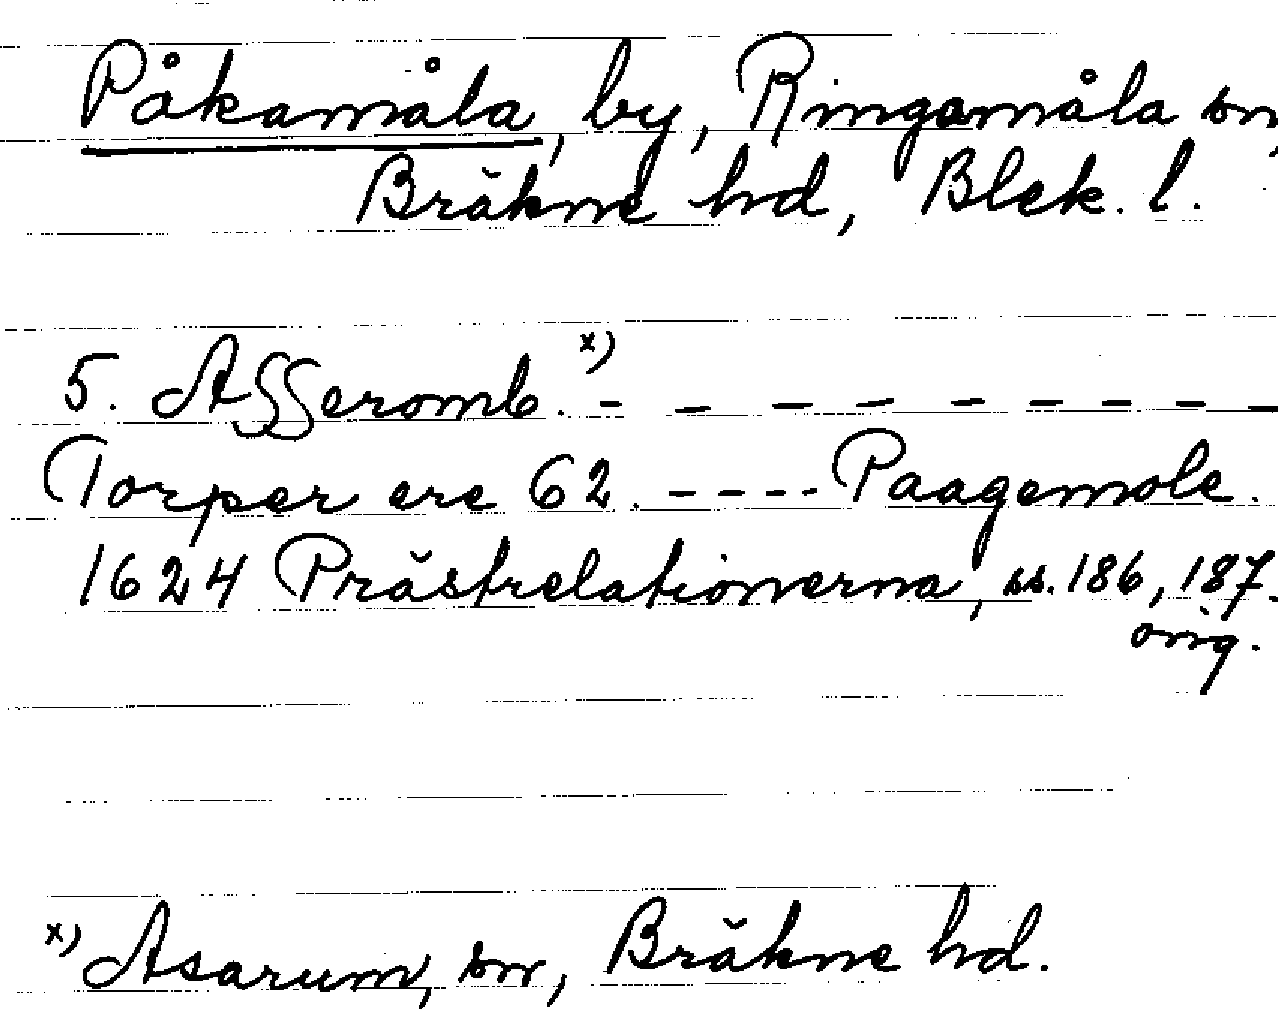 Påkamåla, by, Ringamåla sn,
Bräkne hd, Blek. l.
5. Asseromb. x) - - - - - - - - -
Torper ere 62. - - - - Paagemole.
1624 Prästrelationerna, ss. 186, 187.
orig.
x) Asarum, sn, Bräkne hd.